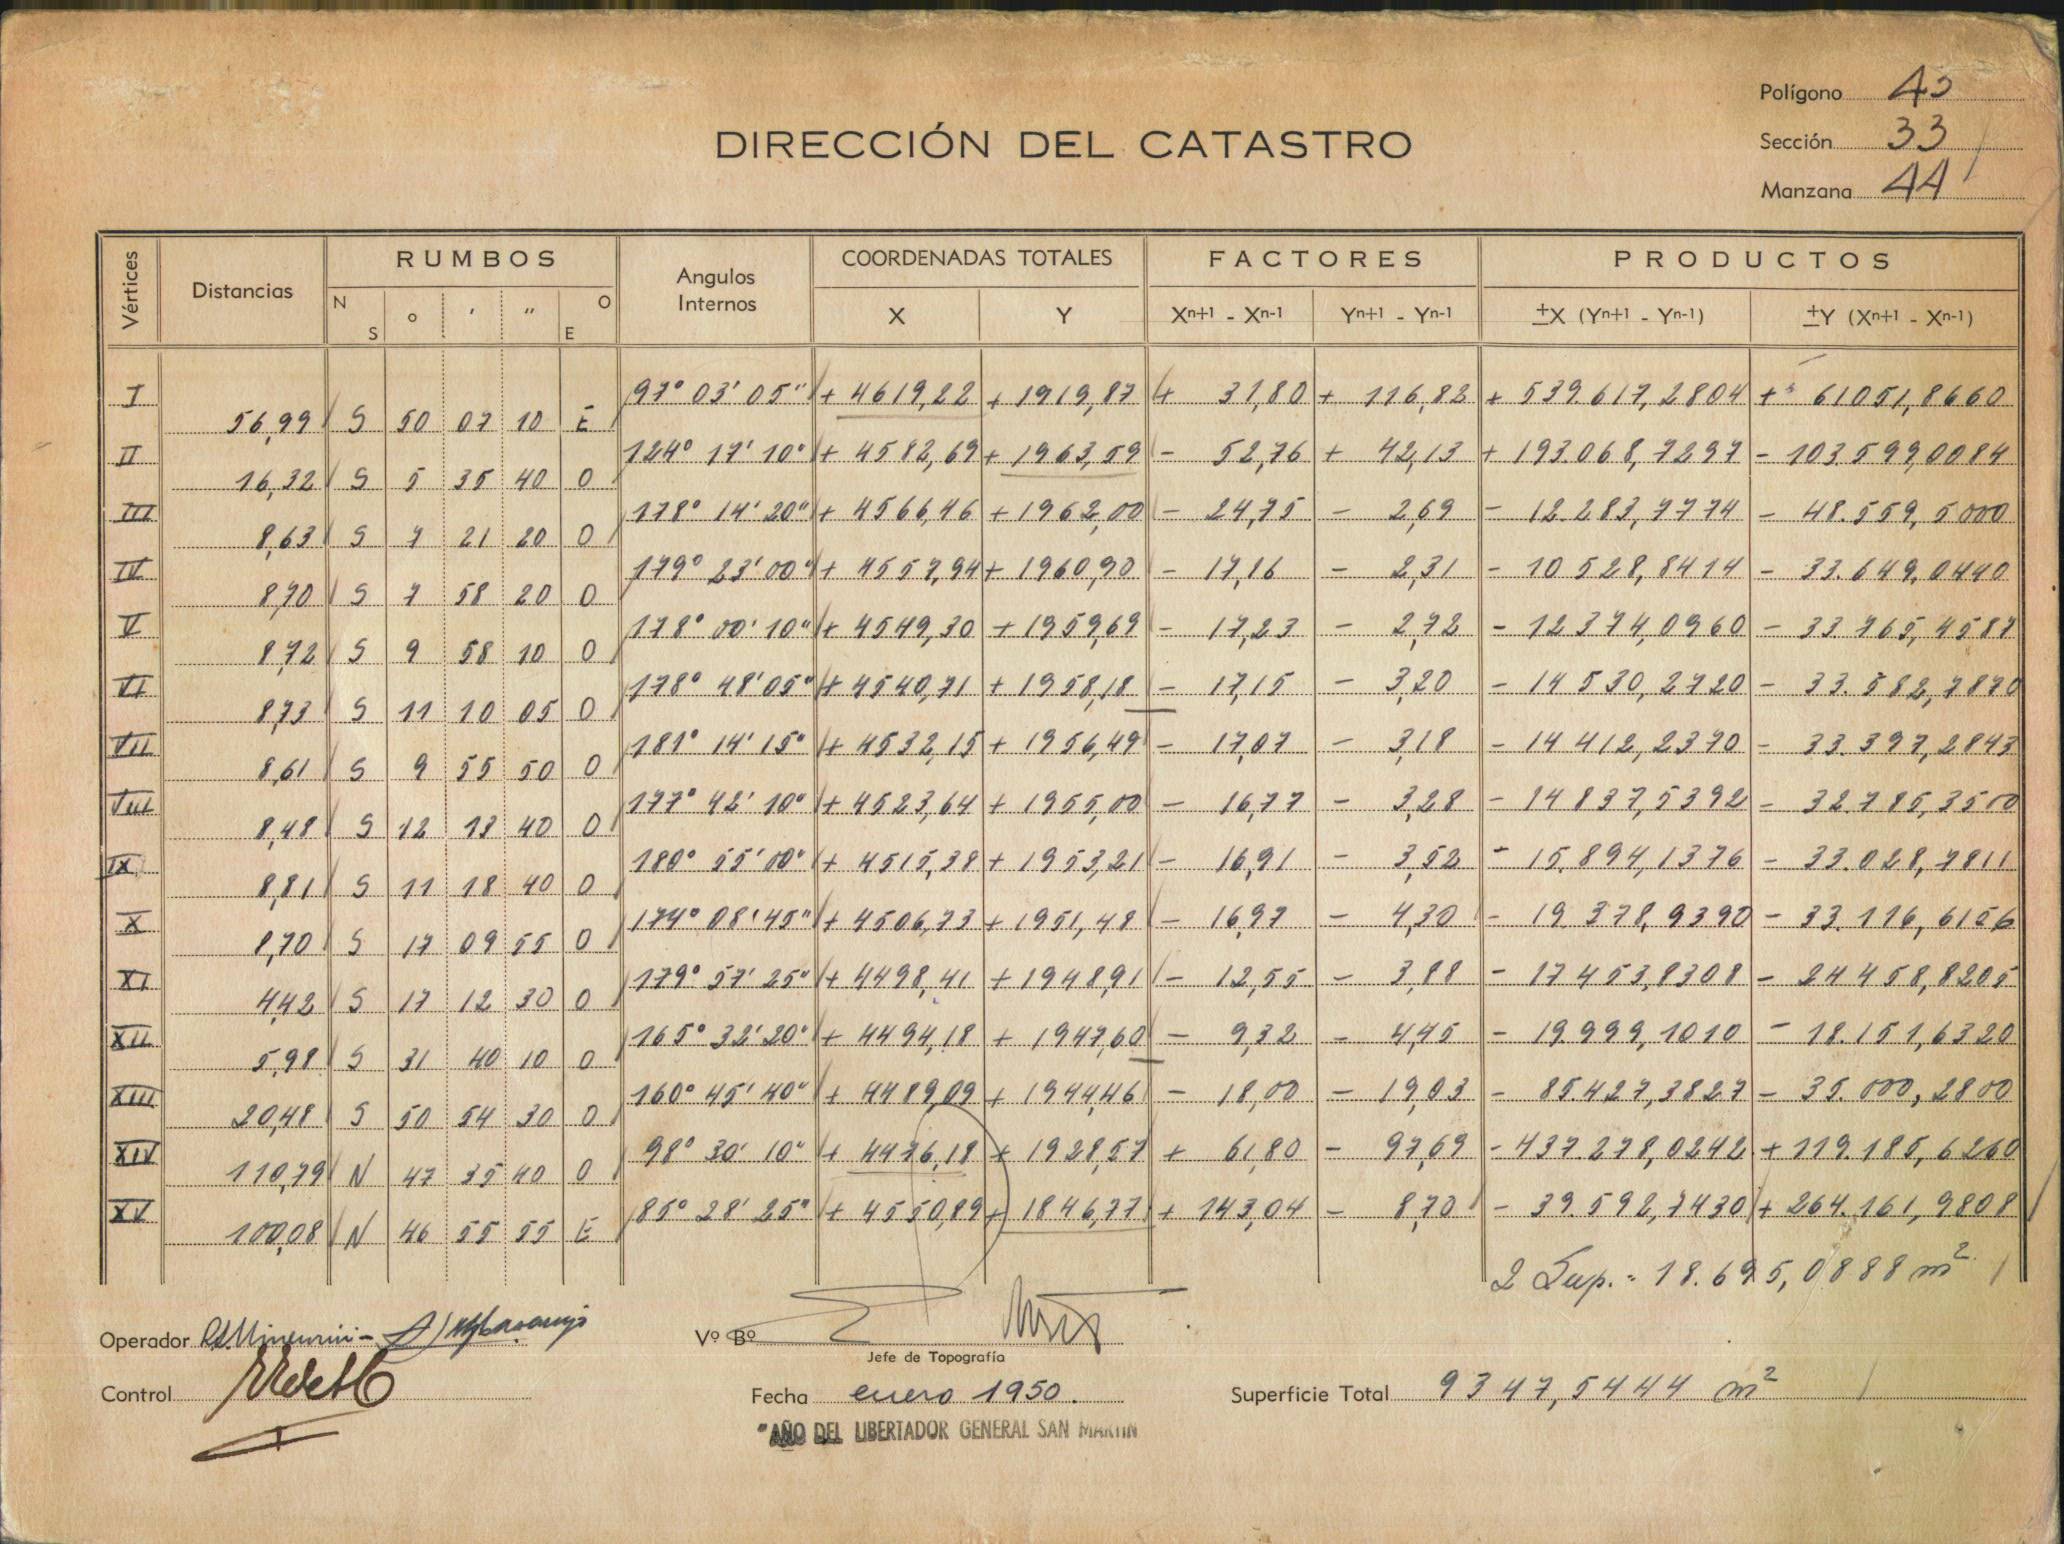 Polígono 45
Sección 33
DIRECCIÓN DEL CATASTRO
Manzana 44
Vértices Distancias RUMBOS Angulos Internos COORDENADAS TOTALES FACTORES PRODUCTOS
N S ° ' " O E X Y Xn+1 - Xn-1 Yn+1 - Yn-1 ±X (Yn+1 - Yn-1) ±Y (Xn+1 - Xn-1)
I 97° 03' 05" + 4619,22 + 1919,87 + 31,80 + 116,82 + 539617,2804 + 61051,8660
56,99 S 50 07 10 E
II 124° 17' 10" + 4582,69 + 1963,59 - 52,76 + 42,13 + 193.068,7297 - 103.599,0084
16,32 S 5 35 40 O
III 178° 14' 20" + 4566,46 + 1962,00 - 24,75 - 2,69 - 12.283,7774 - 48.559,5000
8,63 S 7 21 20 O
IV 179° 23' 00" + 4557,94 + 1960,90 - 17,16 - 2,31 - 10528,8414 - 33.649,0440
8,70 S 7 58 20 O
V 178° 00' 10" + 4549,30 + 1959,69 - 17,23 - 2,72 - 12374,0960 - 33765,4587
8,72 S 9 58 10 O
VI 178° 48' 05" + 4540,71 + 1958,18 - 17,15 - 3,20 - 14530,2720 - 33.582,7870
8,73 S 11 10 05 O
VII 181° 14' 15" + 4532,15 + 1956,49 - 17,07 - 3,18 - 14412,2370 - 33.397,2843
8,61 S 9 55 50 O
VIII 177° 42' 10" + 4523,64 + 1955,00 - 16,77 - 3,28 - 14837,5392 - 32.785,3500
8,48 S 12 13 40 O
IX 180° 55' 00" + 4515,38 + 1953,21 - 16,91 - 3,52 - 15.894,1376 - 33.028,7811
8,81 S 11 18 40 O
X 174° 08' 45" + 4506,73 + 1951,48 - 16,97 - 4,30 - 19.378,9390 - 33.116,6156
8,70 S 17 09 55 O
XI 179° 57' 25" + 4498,41 + 1948,91 - 12,55 - 3,88 - 17453,8308 - 24458,8205
4,42 S 17 12 30 O
XII 165° 32' 20" + 4494,18 + 1947,60 - 9,32 - 4,45 - 19.999,1010 - 18.151,6320
5,98 S 31 40 10 O
XIII 160° 45' 40" + 4489,09 + 1944,46 - 18,00 - 19,03 - 85.427,3827 - 35.000,2800
20,48 S 50 54 30 O
XIV 98° 30' 10" + 4476,18 + 1928,57 + 61,80 - 97,69 - 437.278,0242 + 119.185,6260
110,79 N 47 35 40 O
XV 85° 28' 25" + 4550,89 + 1846,77 + 143,04 - 8,70 - 39.592,7430 + 264.161,9808
100,08 N 46 55 55 E
2 Sup. = 18.695,0888 m²
Operador
Vº Bº
Jefe de Topografía
Control
Fecha enero 1950.
Superficie Total 9347,5444 m²
"AÑO DEL LIBERTADOR GENERAL SAN MARTIN